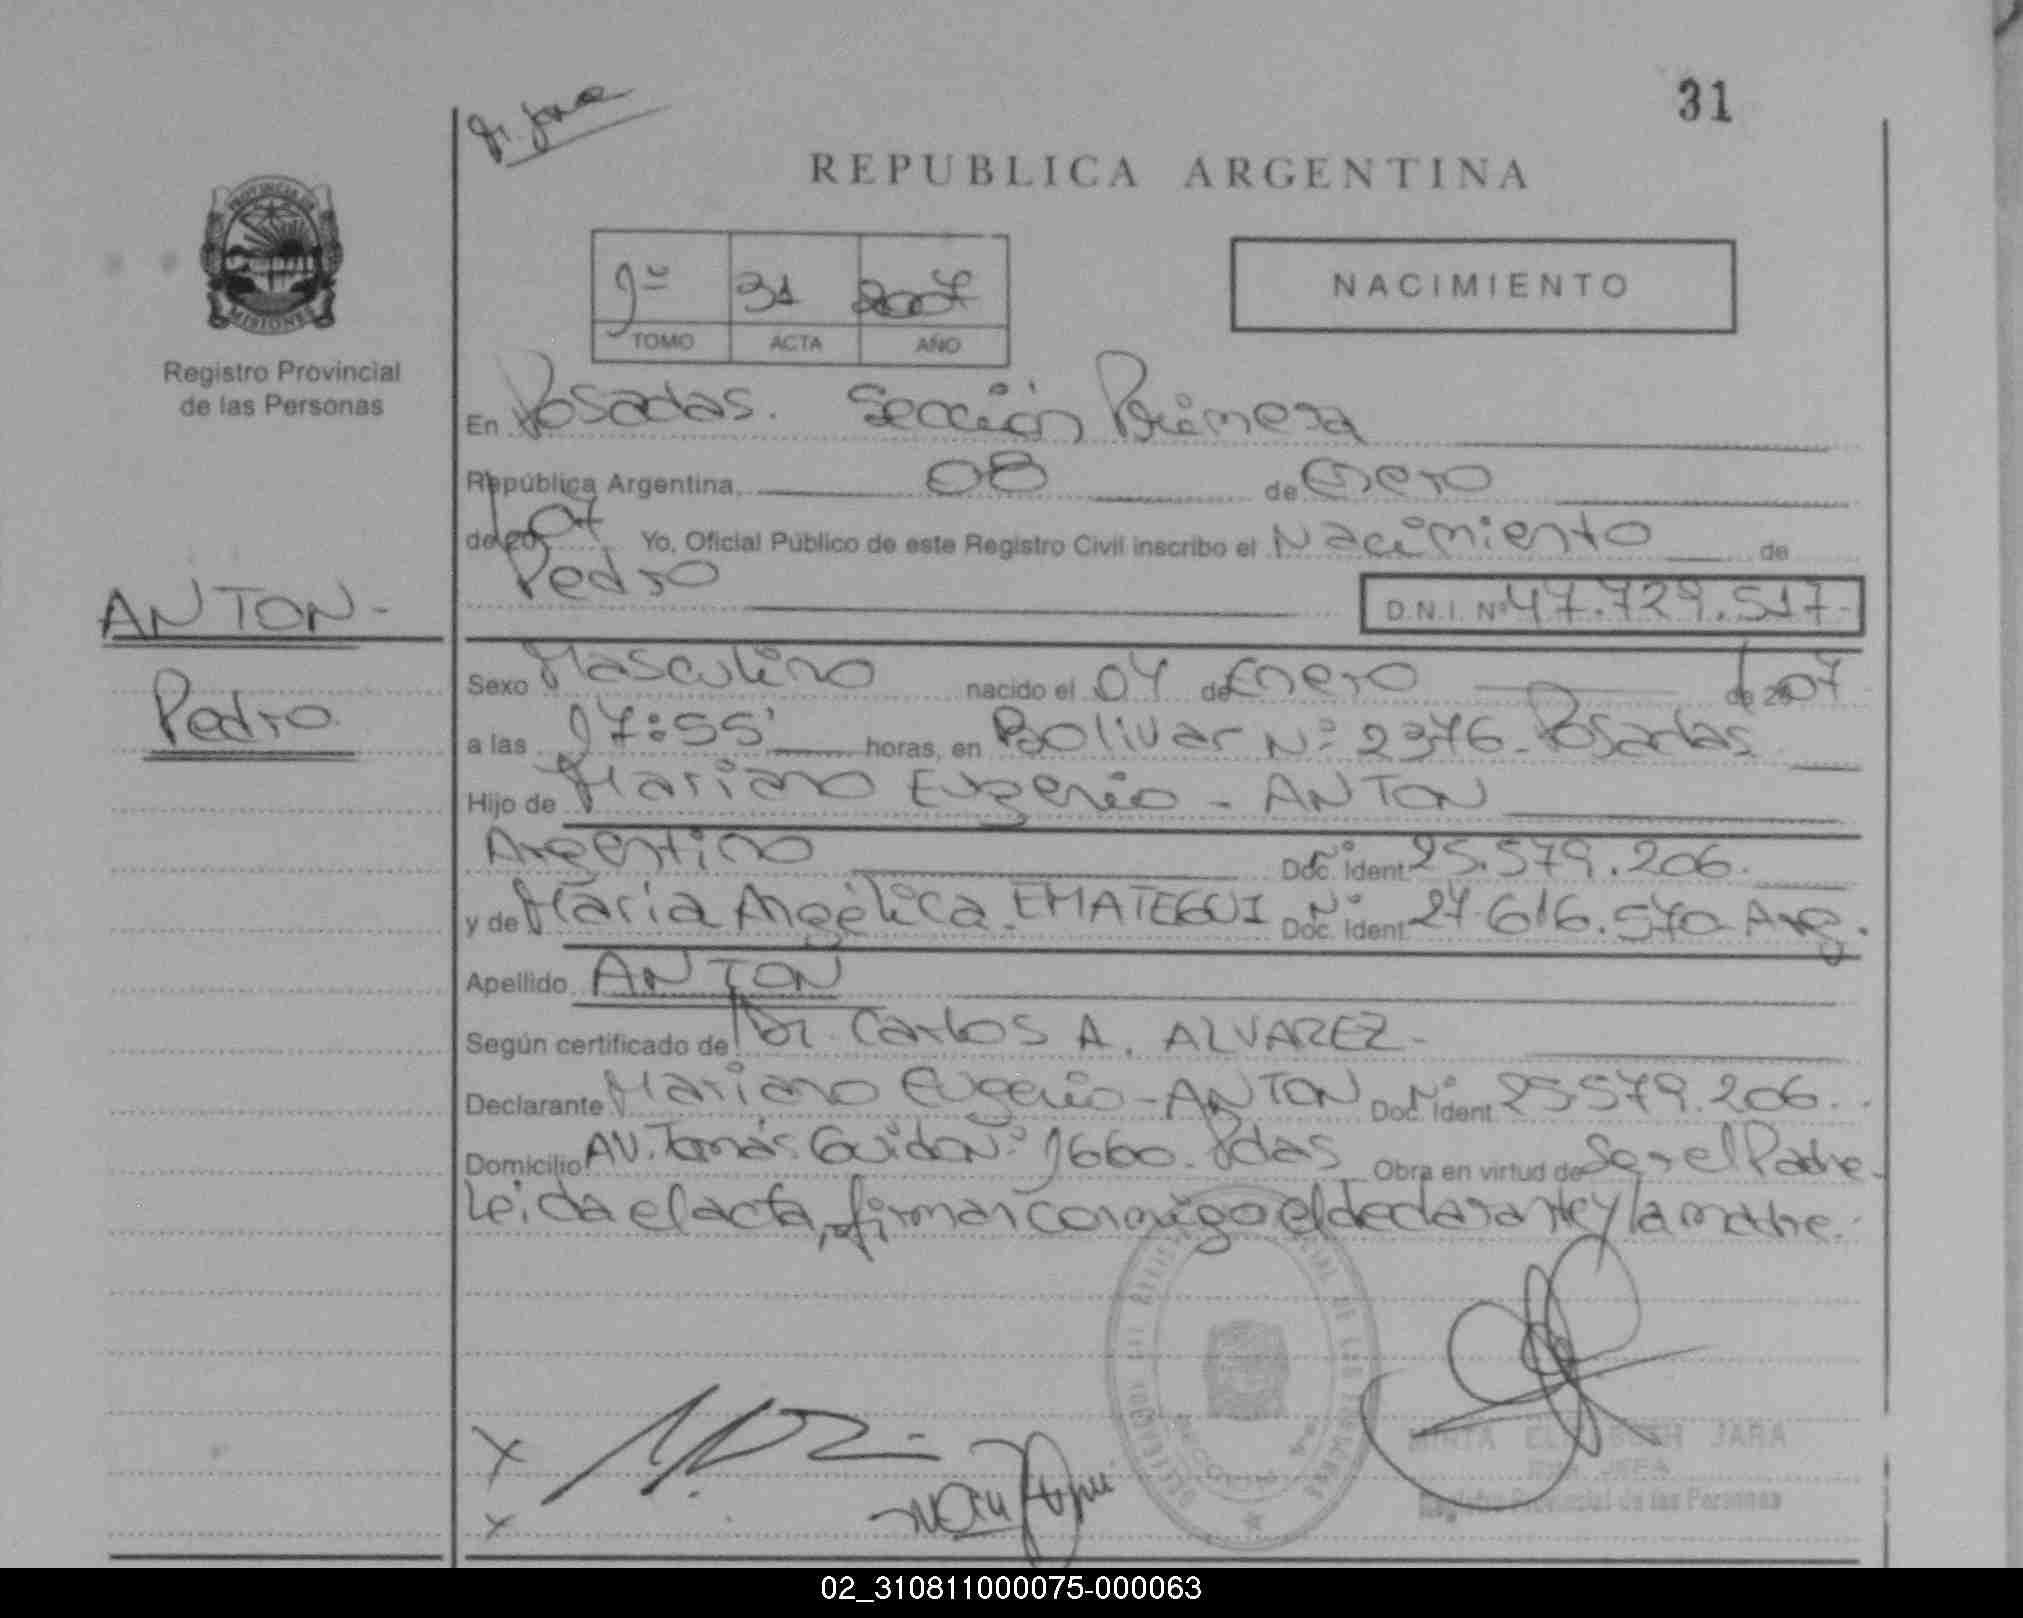 31
Dr. Jara
REPUBLICA ARGENTINA
PROVINCIA DE
MISIONES
1º 31 2007
TOMO ACTA AÑO
NACIMIENTO
Registro Provincial
de las Personas
En Posadas. Sección Primera
República Argentina, 08 de Enero
de 2007 Yo, Oficial Público de este Registro Civil inscribo el Nacimiento de
Pedro
D.N.I. Nº 47.729.517-
ANTON-
Pedro
Sexo Masculino nacido el 04 de Enero de 2007
a las 17:55' horas, en Bolivar Nº 2376. Posadas
Hijo de Mariano Eugenio - ANTON
Argentino Doc. Ident. Nº 25.579.206.
y de María Angélica EMATEGUI Doc. Ident. Nº 27.616.570 Arg.
Apellido ANTON
Según certificado de Dr. Carlos A. ALVAREZ-
Declarante Mariano Eugenio-ANTON Doc. Ident. Nº 25579.206.
Domicilio AV. Tomás Guido Nº 1660. Pdas Obra en virtud de Ser el Padre.
Leida el acta, firman conmigo el declarante y la madre.
MIRTA ELIZABETH JARA
JEFA
Registro Provincial de las Personas
02_310811000075-000063